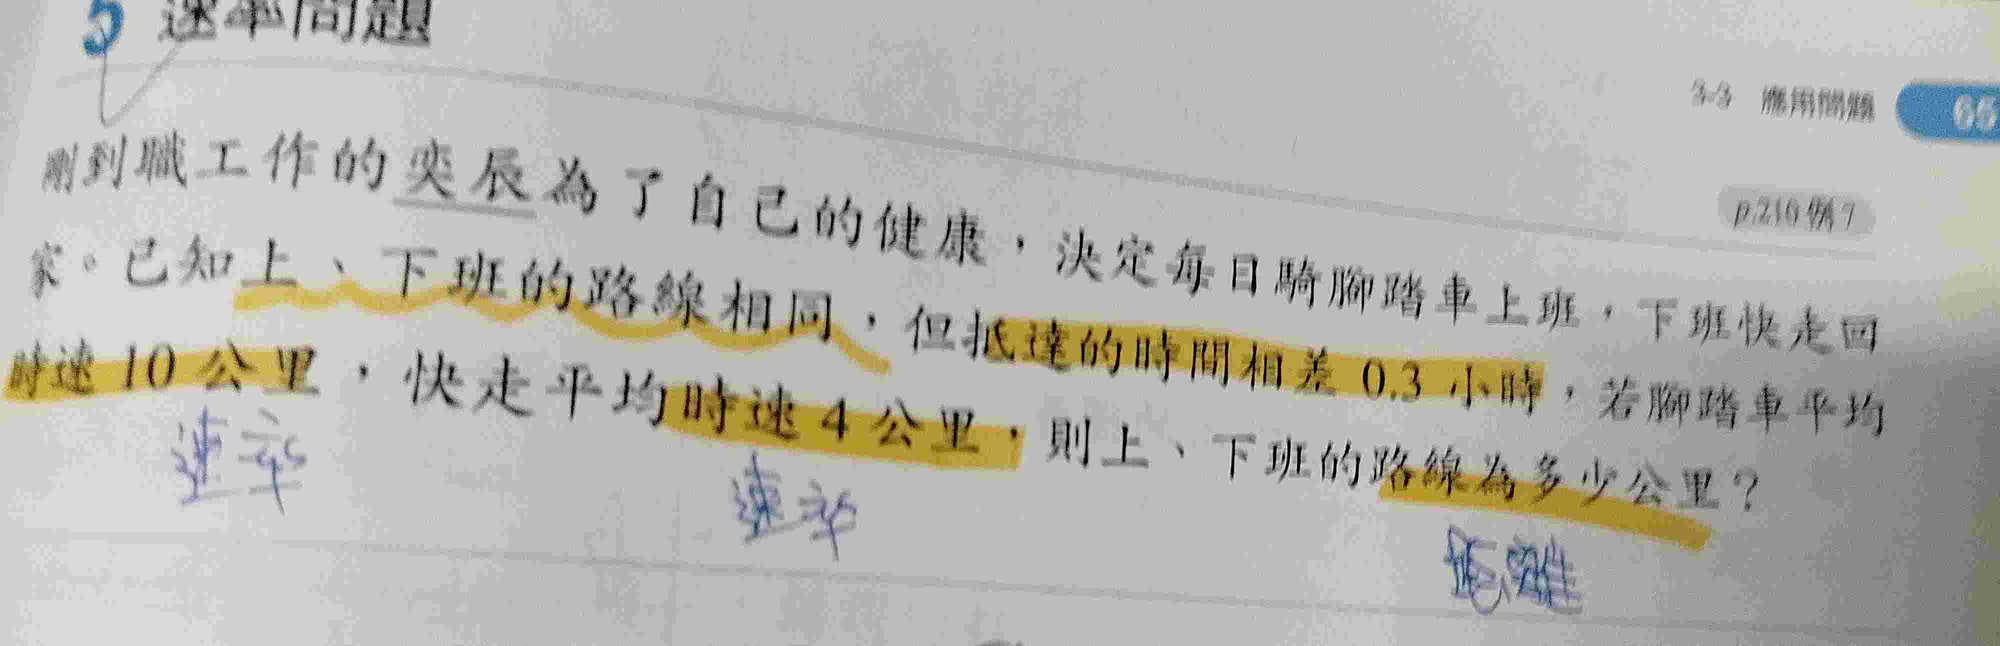 5 速率問題
3-3 應用問題 65
p.210 例 7
剛到職工作的奕辰為了自己的健康，決定每日騎腳踏車上班，下班快走回
家。已知上、下班的路線相同，但抵達的時間相差 0.3 小時，若腳踏車平均
時速 10 公里，快走平均時速 4 公里，則上、下班的路線為多少公里？
速率 速率 距離